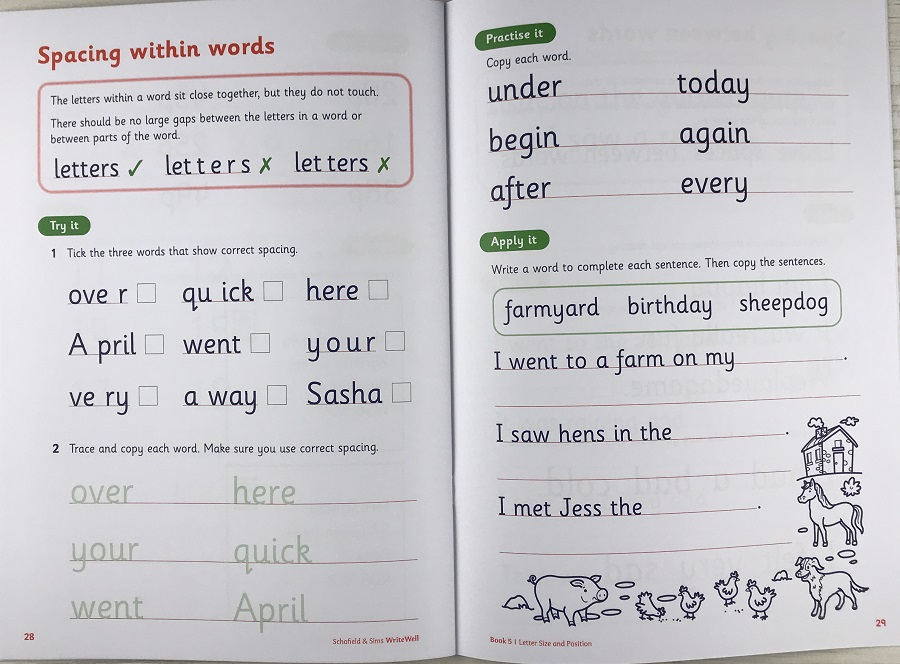 Spacing within words
The letters within a word sit close together, but they do not touch.
There should be no large gaps between the letters in a word or
between parts of the word.
letters ✓ l e t t e r s ✗ let ters ✗
Try it
1 Tick the three words that show correct spacing.
ove r qu ick here
A pril went y o u r
ve ry a way Sasha
2 Trace and copy each word. Make sure you use correct spacing.
over here
your quick
went April
28
Schofield & Sims WriteWell
Practise it
Copy each word.
under today
begin again
after every
Apply it
Write a word to complete each sentence. Then copy the sentences.
farmyard birthday sheepdog
I went to a farm on my .
I saw hens in the .
I met Jess the .
Book 5 | Letter Size and Position
29